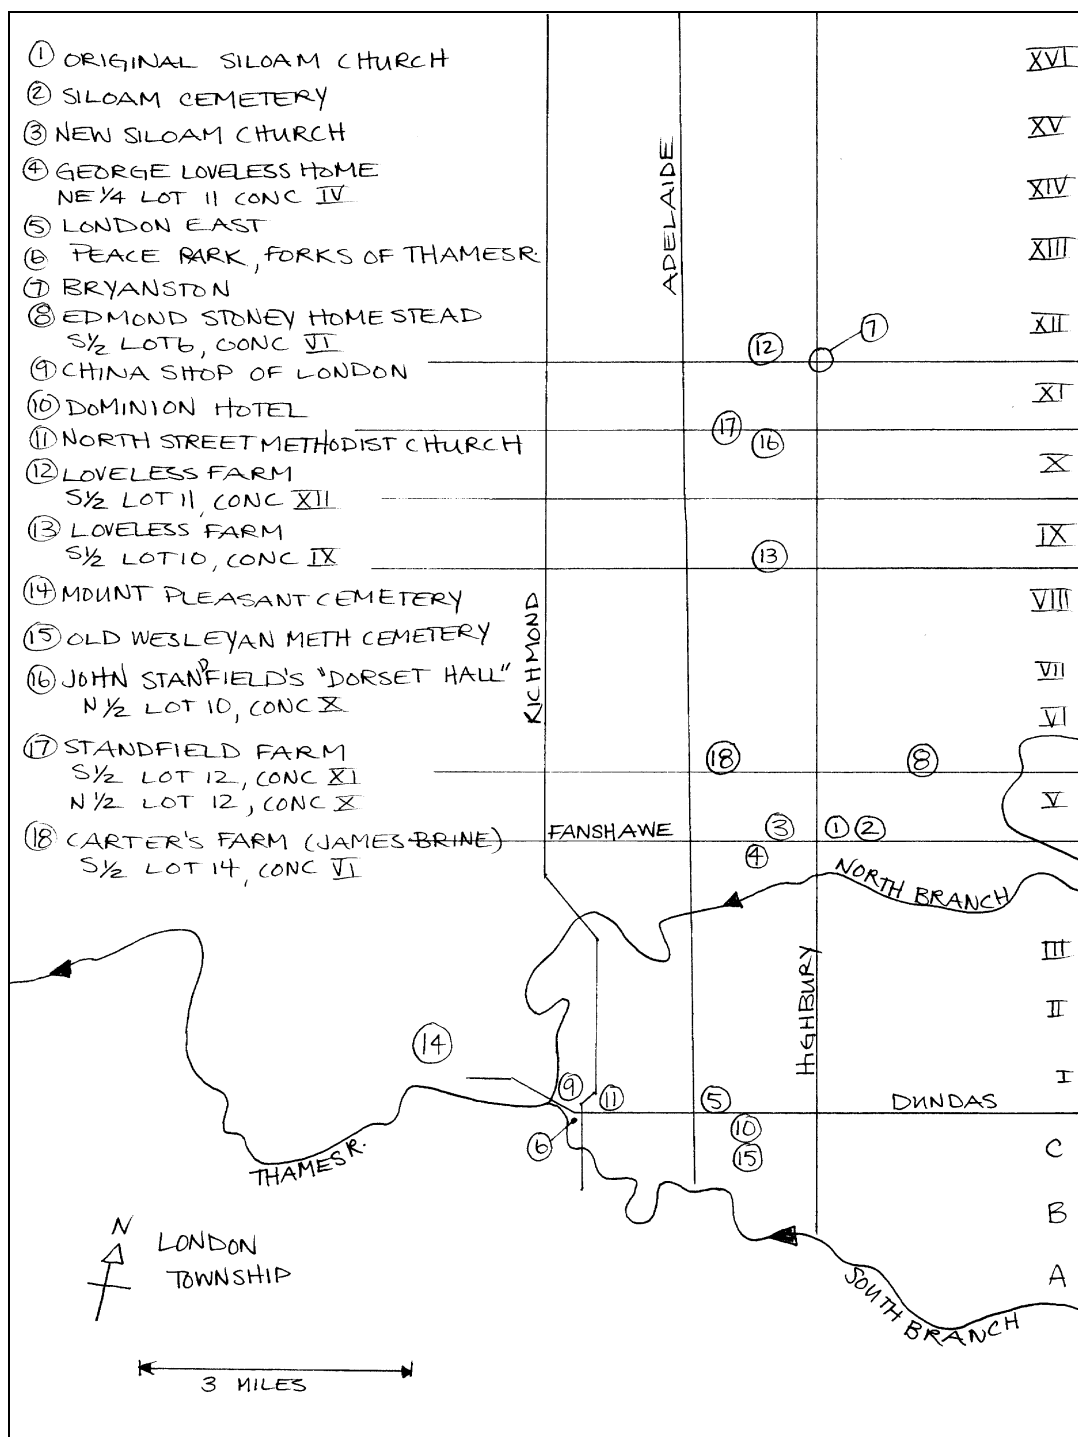 ① ORIGINAL SILOAM CHURCH
② SILOAM CEMETERY
③ NEW SILOAM CHURCH
④ GEORGE LOVELESS HOME
NE 1/4 LOT 11 CONC IV
⑤ LONDON EAST
⑥ PEACE PARK, FORKS OF THAMES R.
⑦ BRYANSTON
⑧ EDMOND STONEY HOMESTEAD
S 1/2 LOT 6, CONC VI
⑨ CHINA SHOP OF LONDON
⑩ DOMINION HOTEL
⑪ NORTH STREET METHODIST CHURCH
⑫ LOVELESS FARM
S 1/2 LOT 11, CONC XII
⑬ LOVELESS FARM
S 1/2 LOT 10, CONC IX
⑭ MOUNT PLEASANT CEMETERY
⑮ OLD WESLEYAN METH CEMETERY
⑯ JOHN STANDFIELD'S "DORSET HALL"
N 1/2 LOT 10, CONC X
⑰ STANDFIELD FARM
S 1/2 LOT 12, CONC XI
N 1/2 LOT 12, CONC X
⑱ CARTER'S FARM (JAMES BRINE)
S 1/2 LOT 14, CONC VI
RICHMOND
ADELAIDE
HIGHBURY
XVI
XV
XIV
XIII
XII
XI
X
IX
VIII
VII
VI
V
III
II
I
C
B
A
⑦
⑫
⑰
⑯
⑬
⑱
⑧
FANSHAWE
③
①
②
④
NORTH BRANCH
⑭
⑨
⑪
⑤
DUNDAS
⑩
⑥
⑮
THAMES R.
SOUTH BRANCH
N
LONDON
TOWNSHIP
3 MILES